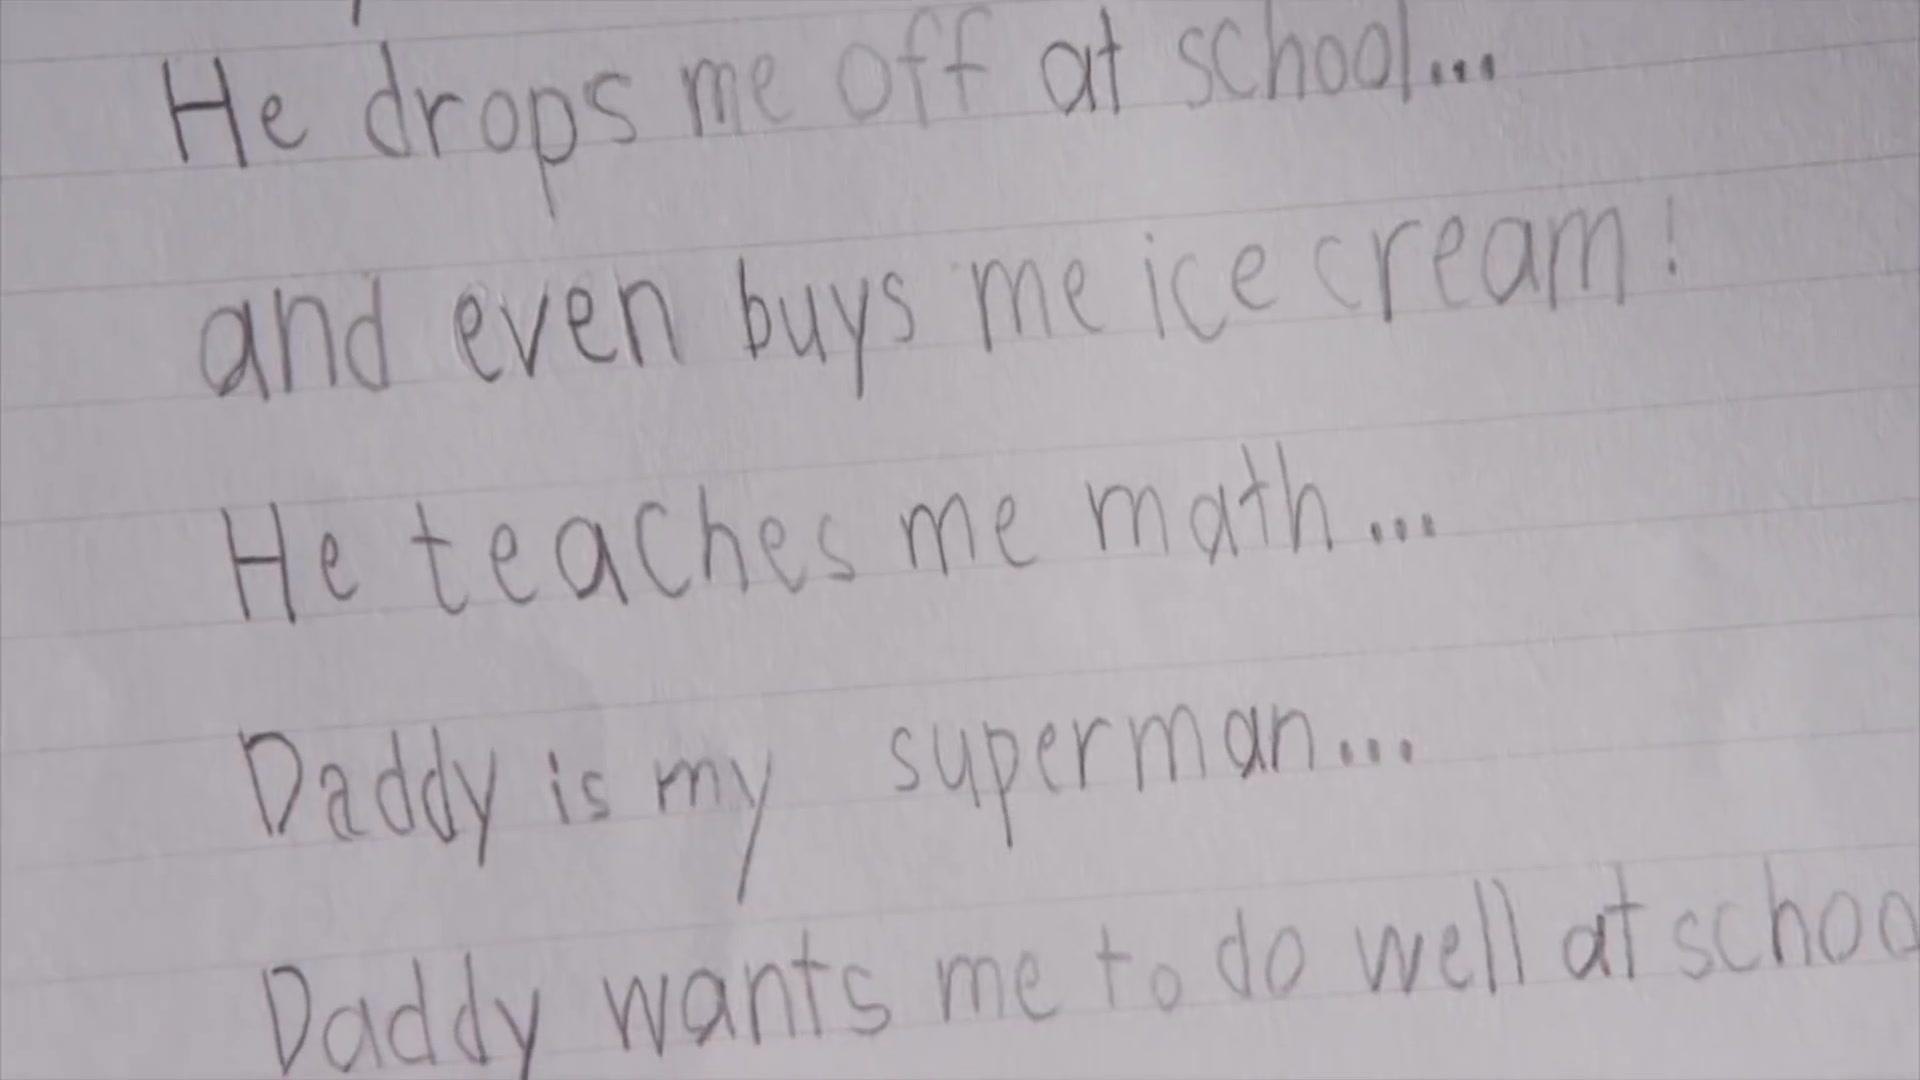 He drops me off at school...
and even buys me ice cream!
He teaches me math...
Daddy is my superman...
Daddy wants me to do well at schoo